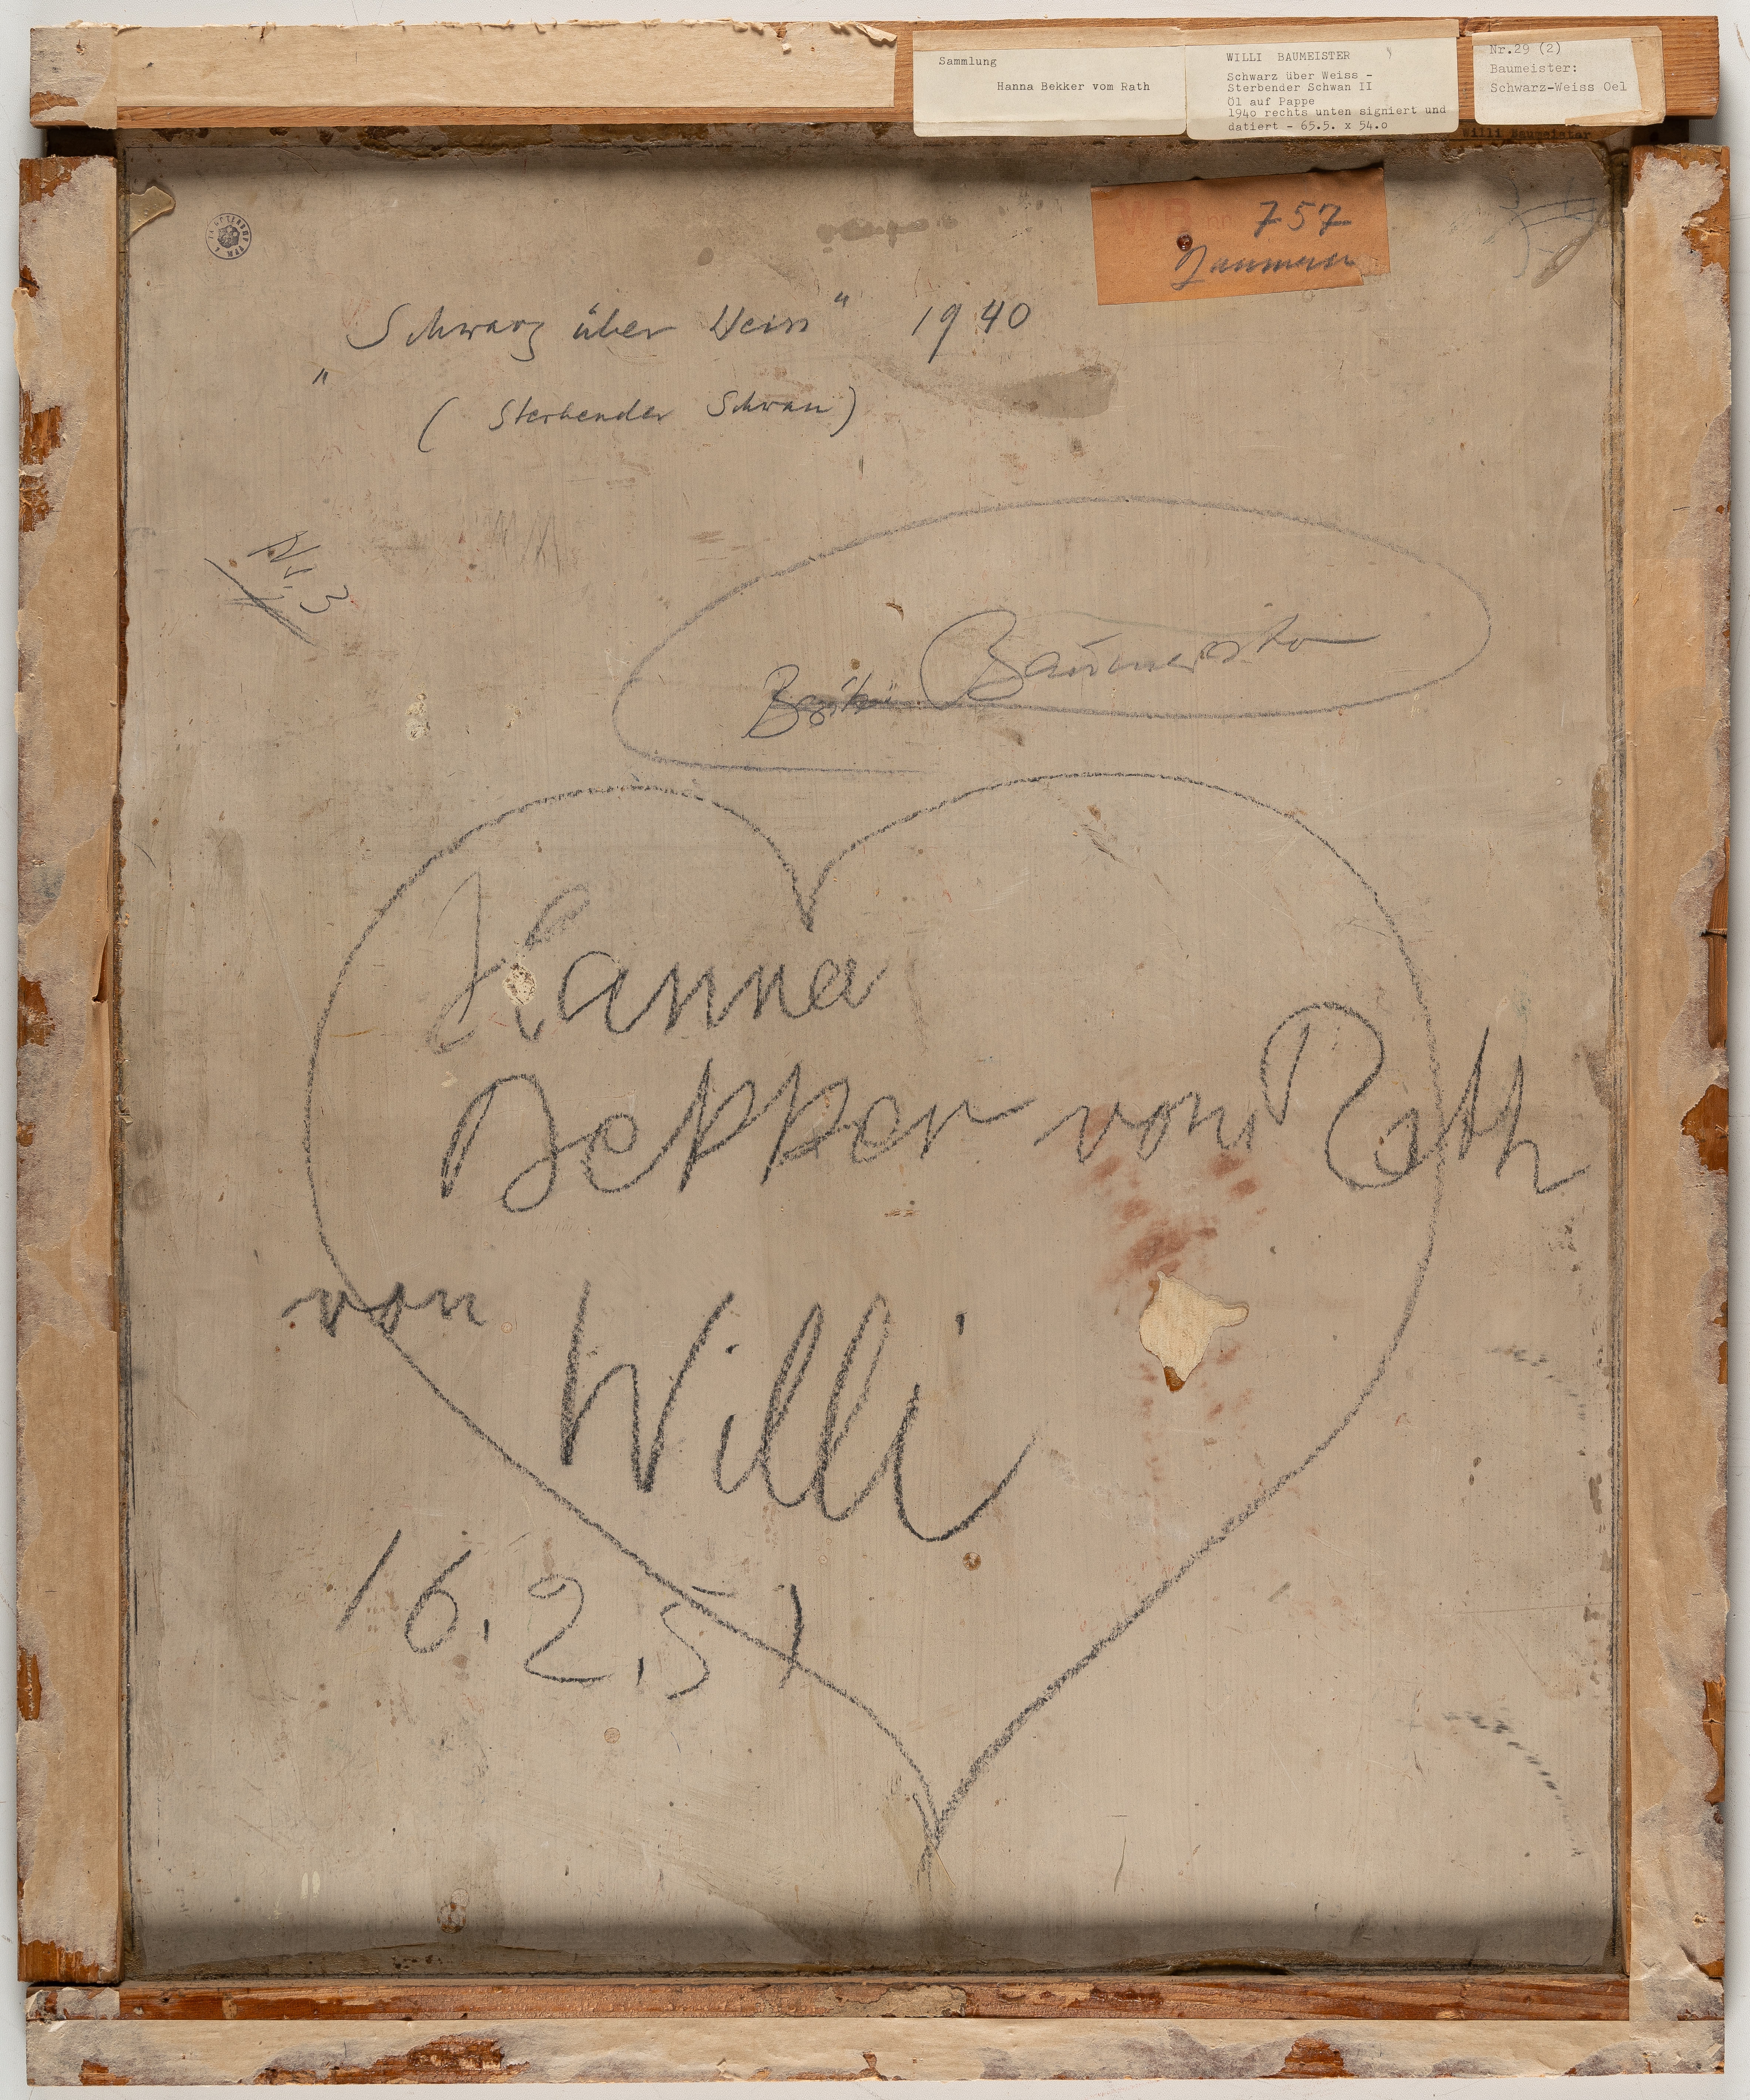 Sammlung
Hanna Bekker vom Rath
WILLI BAUMEISTER
Schwarz über Weiss -
Sterbender Schwan II
Öl auf Pappe
1940 rechts unten signiert und
datiert - 65.5. x 54.0
Nr.29 (2)
Baumeister:
Schwarz-Weiss Oel
Willi Baumeister
757
"Schwarz über Weiss" 1940
(Sterbender Schwan)
Nr. 3
Baumeister
Hanna
Bekker vom Rath
von Willi
16.2.51